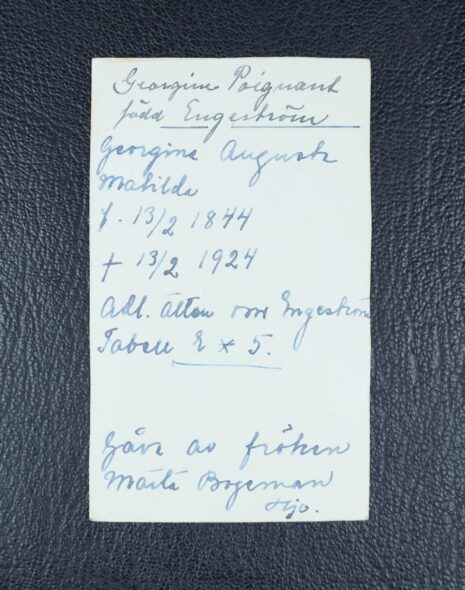 Georgine Poignant
född Engeström
Georgina Augusta
Matilda
f. 13/2 1844
† 13/2 1924
Adl. ätten von Engeström
Tabell 2 x 5.
Gåva av fröken
Märta Bogeman
Hjo.